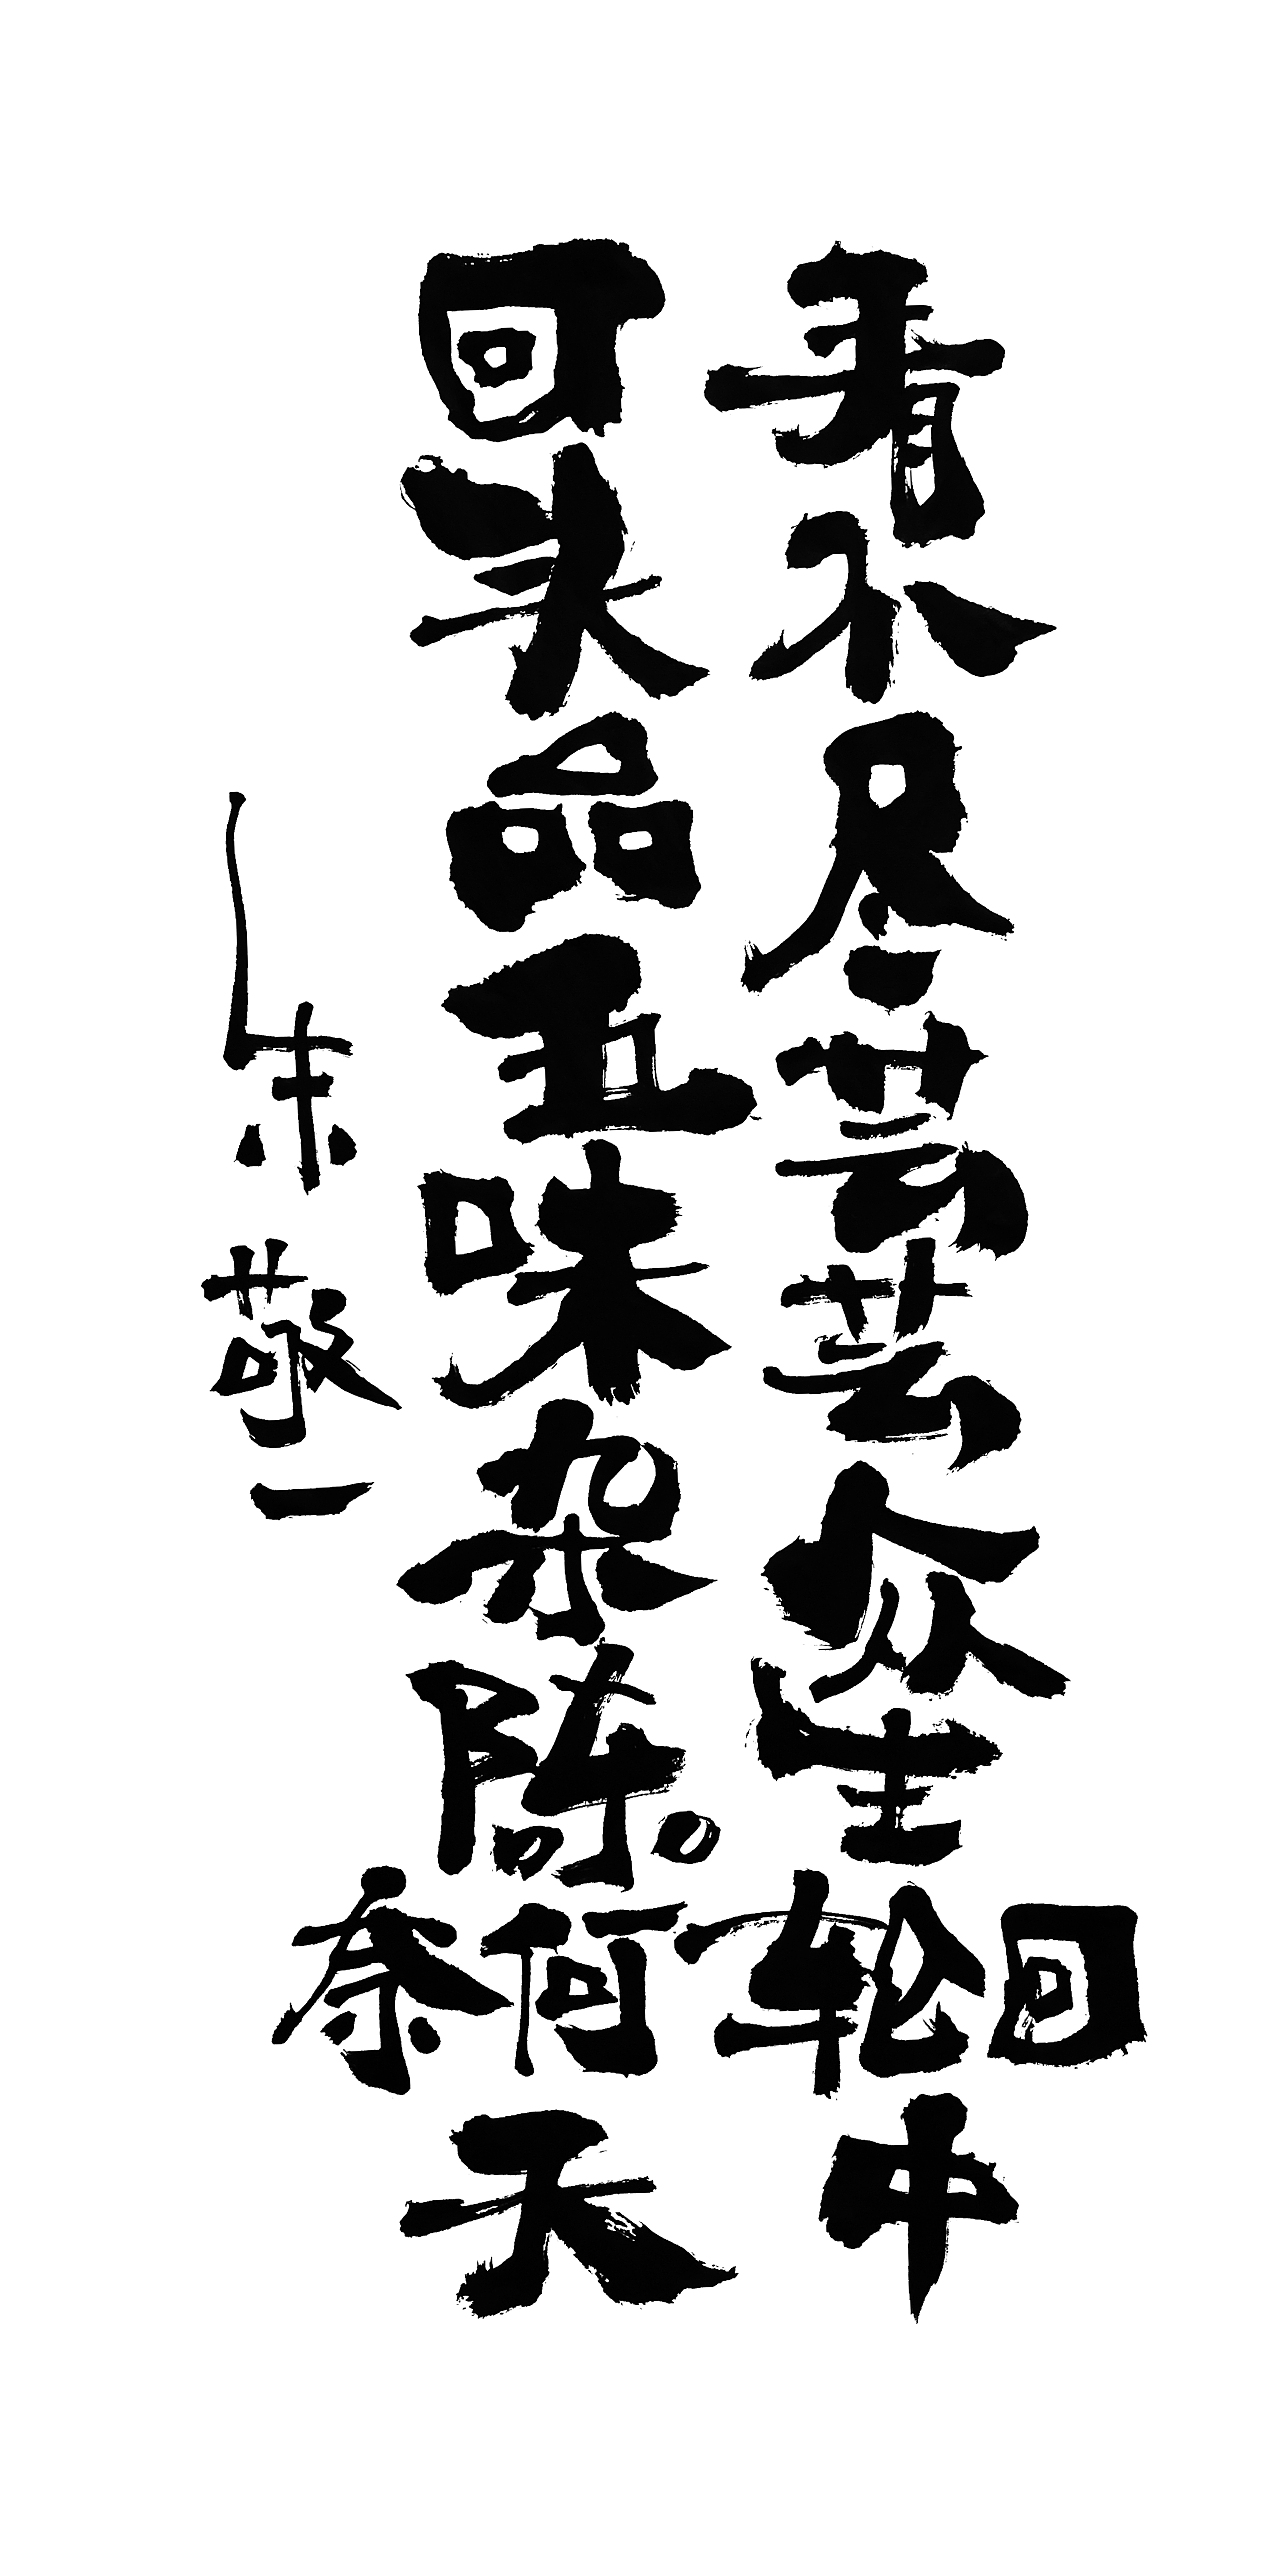 看不尽芸芸众生轮回中
回头品五味杂陈。奈何天
朱敬一